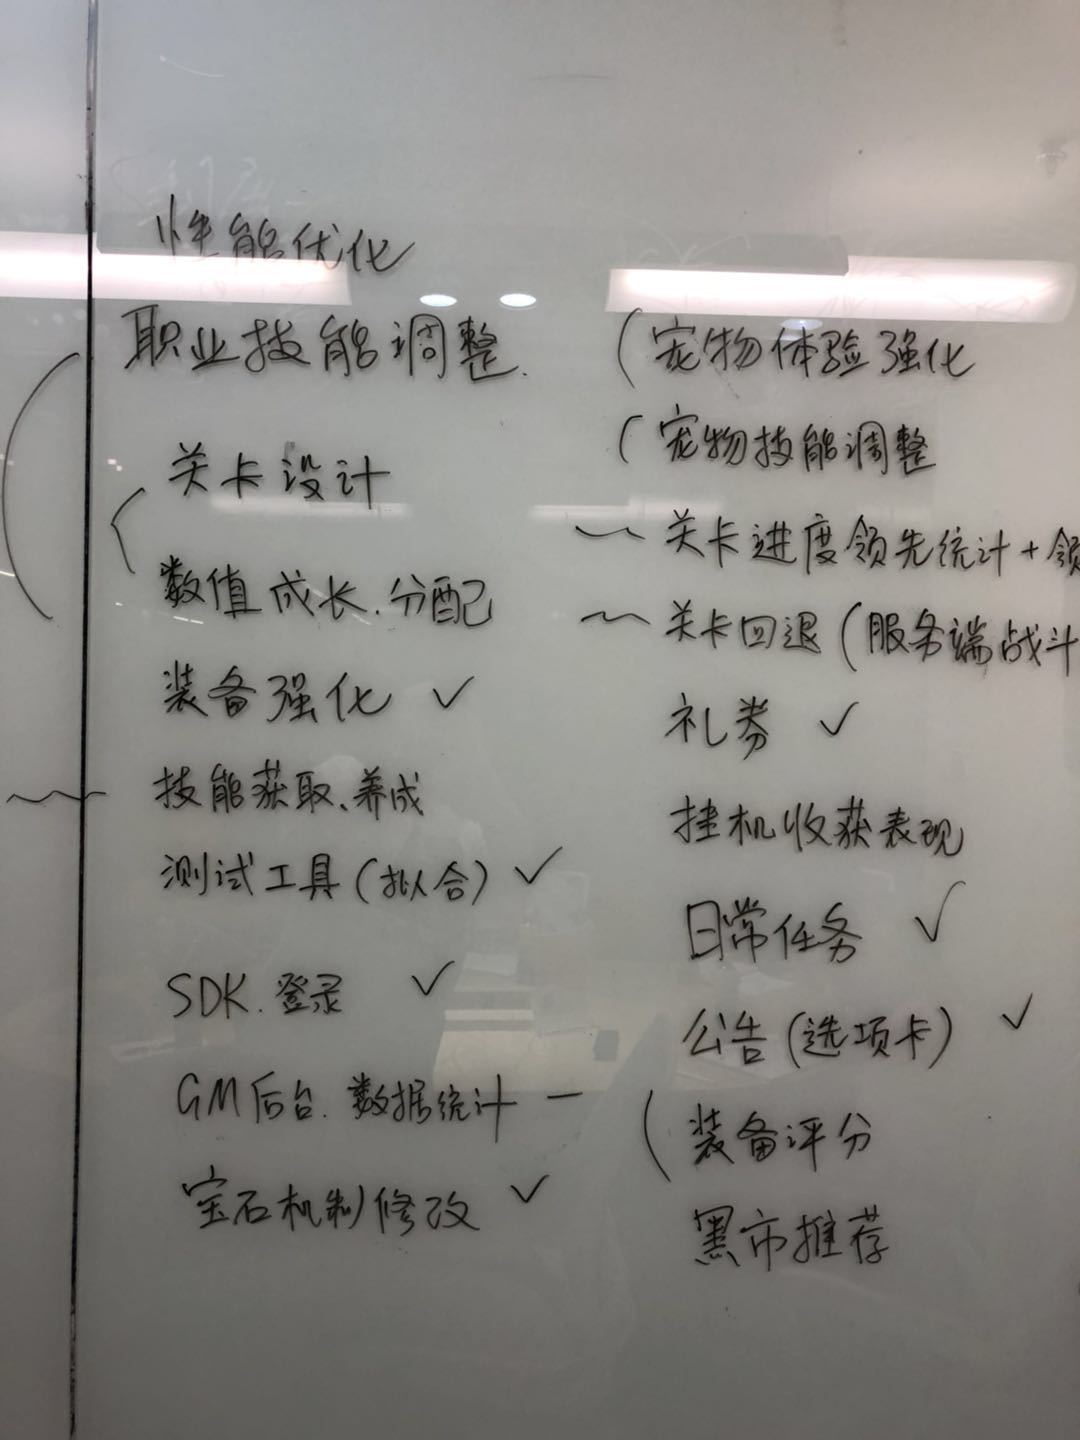 性能优化
职业技能调整.
关卡设计
数值成长.分配
装备强化 ✓
技能获取、养成
测试工具(拟合) ✓
SDK.登录 ✓
GM后台.数据统计 —
宝石机制修改 ✓
(宠物体验强化
(宠物技能调整
~ 关卡进度领先统计+领
~ 关卡回退(服务端战斗
礼券 ✓
挂机收获表现
日常任务 ✓
公告(选项卡) ✓
(装备评分
黑市推荐